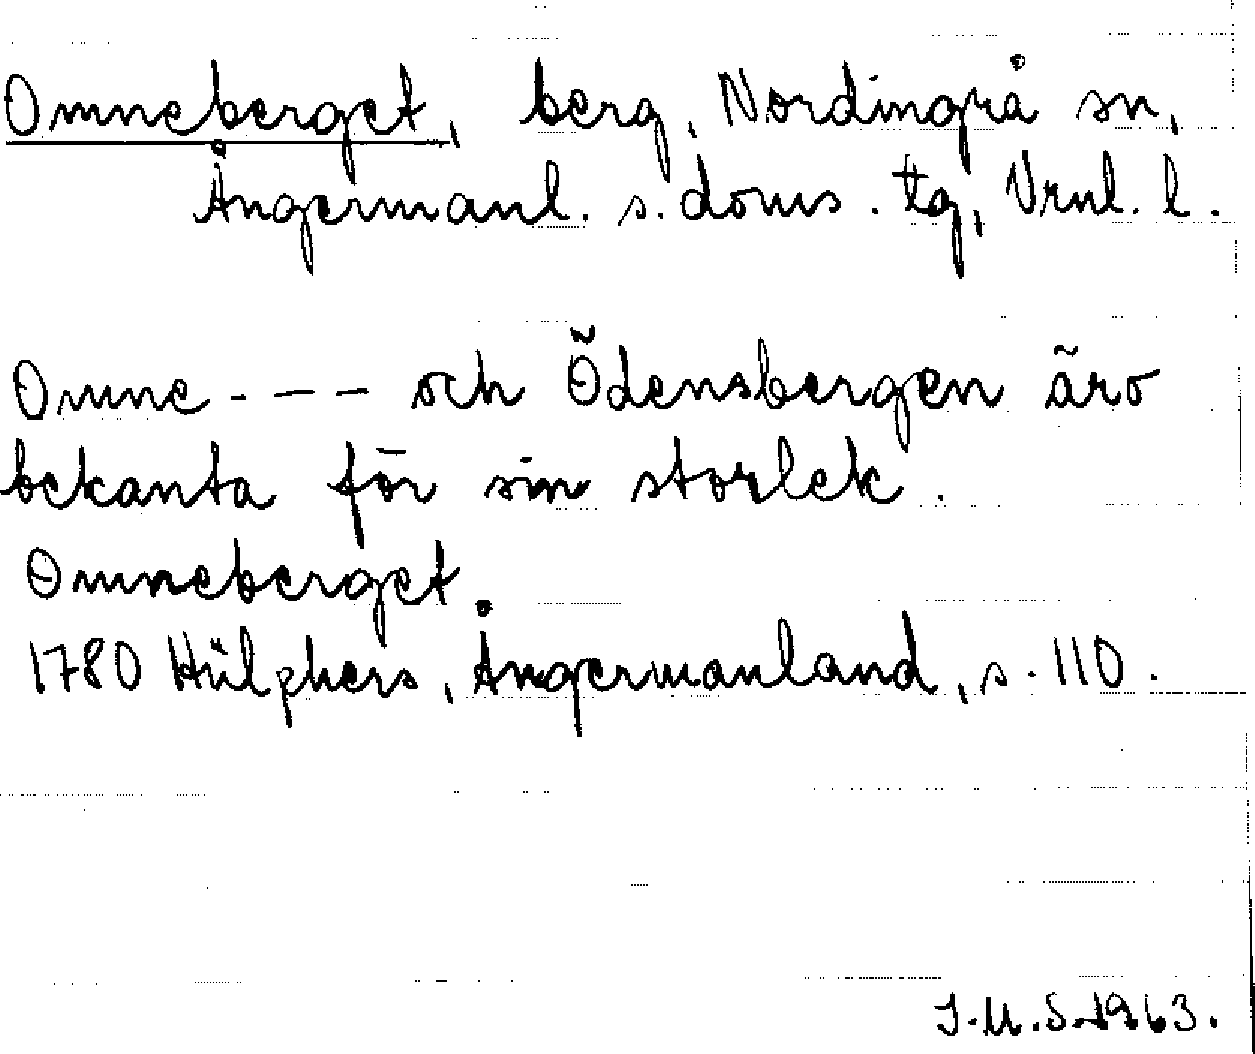 Omneberget, berg, Nordingrå sn,
Ångermanl. s. doms. tg, Vrnl. l.
Omne - - - - och Ödensbergen äro
bekanta för sin storlek.
Omneberget.
1780 Hülphers, Ångermanland, s. 110.
J.M.S. 1963.